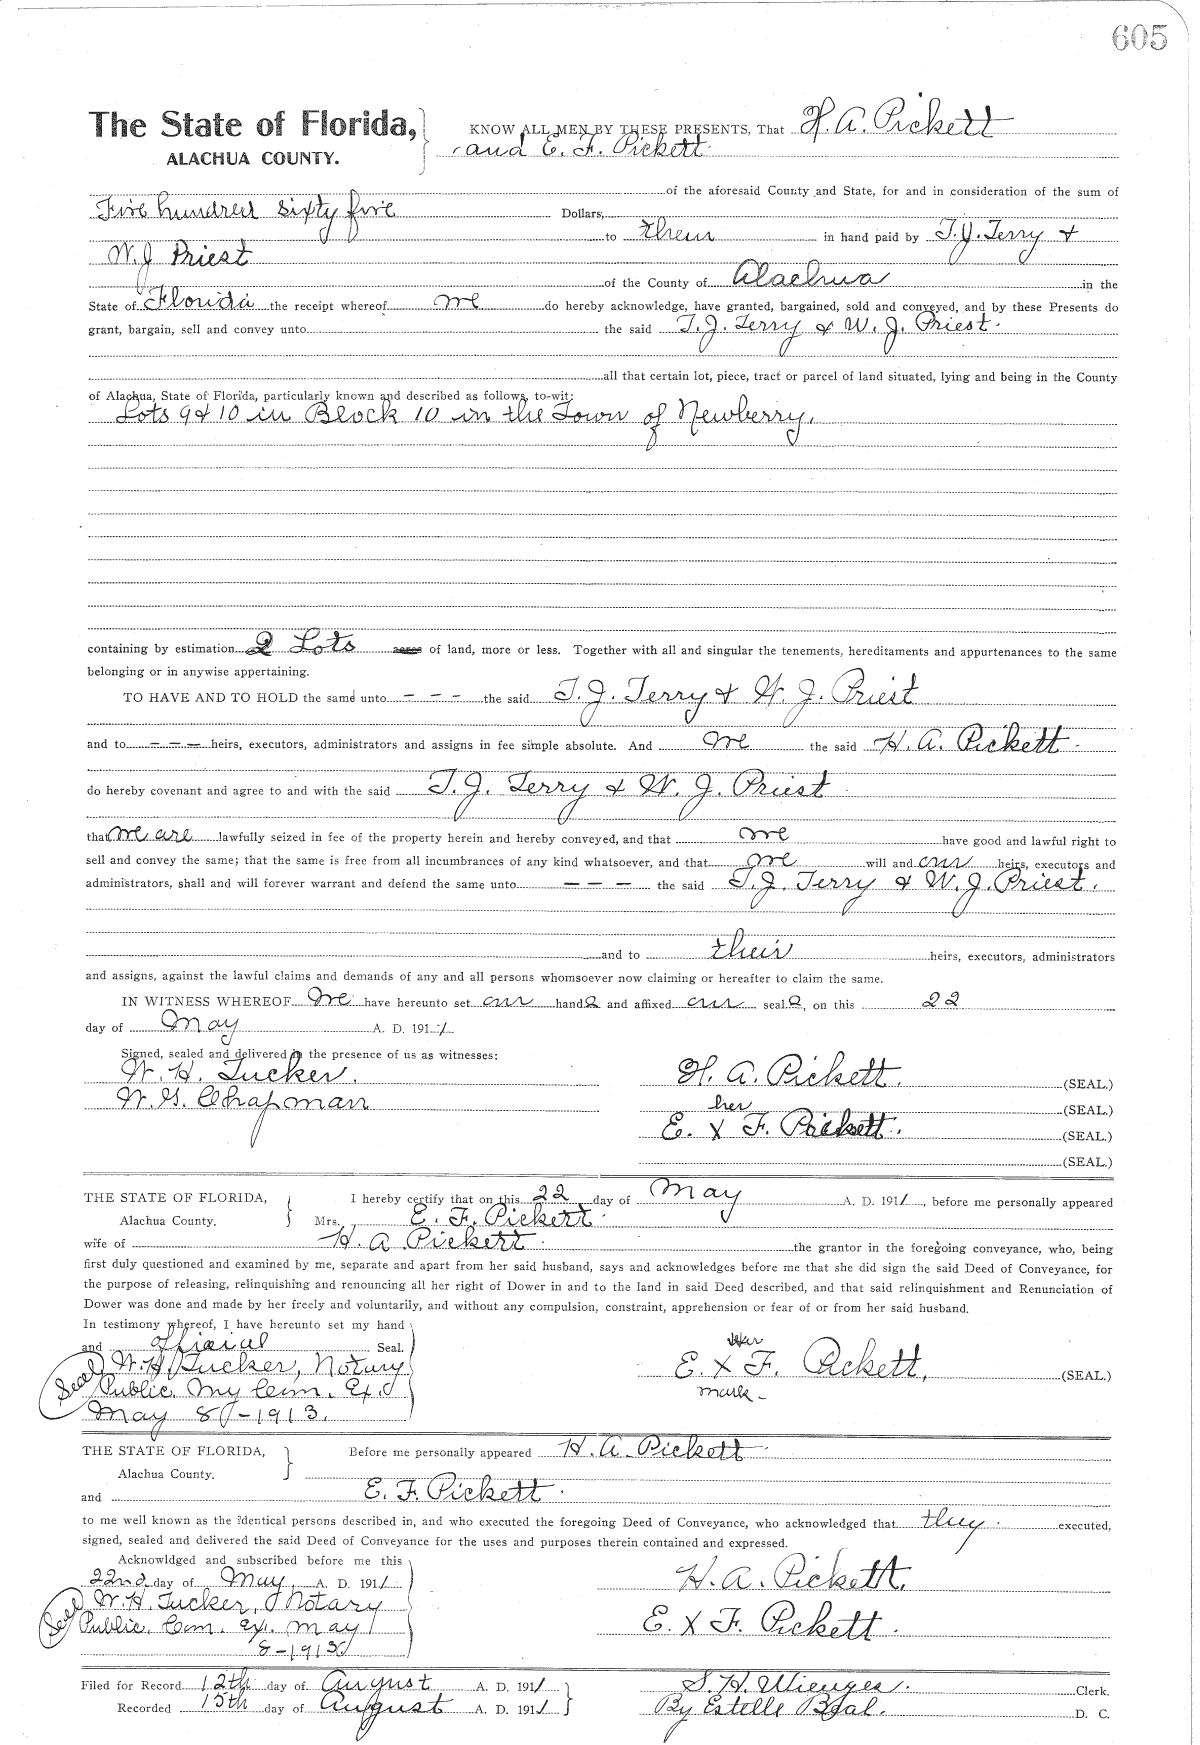 605
The State of Florida, KNOW ALL MEN BY THESE PRESENTS, That H. A. Pickett
ALACHUA COUNTY. and E. F. Pickett
of the aforesaid County and State, for and in consideration of the sum of
Five hundred sixty five Dollars,
to them in hand paid by T. J. Terry &
W. J Priest
of the County of Alachua in the
State of Florida the receipt whereof we do hereby acknowledge, have granted, bargained, sold and conveyed, and by these Presents do
grant, bargain, sell and convey unto the said T. J. Terry & W. J. Priest.
all that certain lot, piece, tract or parcel of land situated, lying and being in the County
of Alachua, State of Florida, particularly known and described as follows, to-wit:
Lots 9 & 10 in Block 10 in the Town of Newberry.
containing by estimation 2 Lots acres of land, more or less. Together with all and singular the tenements, hereditaments and appurtenances to the same
belonging or in anywise appertaining.
TO HAVE AND TO HOLD the same unto - - - the said T. J. Terry & W. J. Priest
and to - - - heirs, executors, administrators and assigns in fee simple absolute. And we the said H. A. Pickett.
do hereby covenant and agree to and with the said T. J. Terry & W. J. Priest
that we are lawfully seized in fee of the property herein and hereby conveyed, and that we have good and lawful right to
sell and convey the same; that the same is free from all incumbrances of any kind whatsoever, and that we will and our heirs, executors and
administrators, shall and will forever warrant and defend the same unto - - - the said T. J. Terry & W. J. Priest.
and to their heirs, executors, administrators
and assigns, against the lawful claims and demands of any and all persons whomsoever now claiming or hereafter to claim the same.
IN WITNESS WHEREOF We have hereunto set our hands and affixed our seals, on this 22
day of May A. D. 1911
Signed, sealed and delivered in the presence of us as witnesses:
W. H. Tucker. H. A. Pickett. (SEAL.)
W. G. Chapman her (SEAL.)
E. X F. Pickett. (SEAL.)
(SEAL.)
THE STATE OF FLORIDA, I hereby certify that on this 22 day of May A. D. 1911, before me personally appeared
Alachua County. Mrs. E. F. Pickett.
wife of H. A Pickett. the grantor in the foregoing conveyance, who, being
first duly questioned and examined by me, separate and apart from her said husband, says and acknowledges before me that she did sign the said Deed of Conveyance, for
the purpose of releasing, relinquishing and renouncing all her right of Dower in and to the land in said Deed described, and that said relinquishment and Renunciation of
Dower was done and made by her freely and voluntarily, and without any compulsion, constraint, apprehension or fear of or from her said husband.
In testimony whereof, I have hereunto set my hand
and official Seal. her
Seal W. H. Tucker, Notary E. X F. Pickett, (SEAL.)
Public. My Com. Ex.d mark -
May 8-1913.
THE STATE OF FLORIDA, Before me personally appeared H. A. Pickett
Alachua County.
and E. F. Pickett.
to me well known as the identical persons described in, and who executed the foregoing Deed of Conveyance, who acknowledged that they executed,
signed, sealed and delivered the said Deed of Conveyance for the uses and purposes therein contained and expressed.
Acknowldged and subscribed before me this
22nd day of May, A. D. 1911 H. A. Pickett.
Seal W. H. Tucker, Notary
Public. Com. Ex. May E. X F. Pickett.
8-1913
Filed for Record 12th day of August A. D. 1911 S. H. Wienges. Clerk.
Recorded 15th day of August A. D. 1911 By Estelle Beal. D. C.